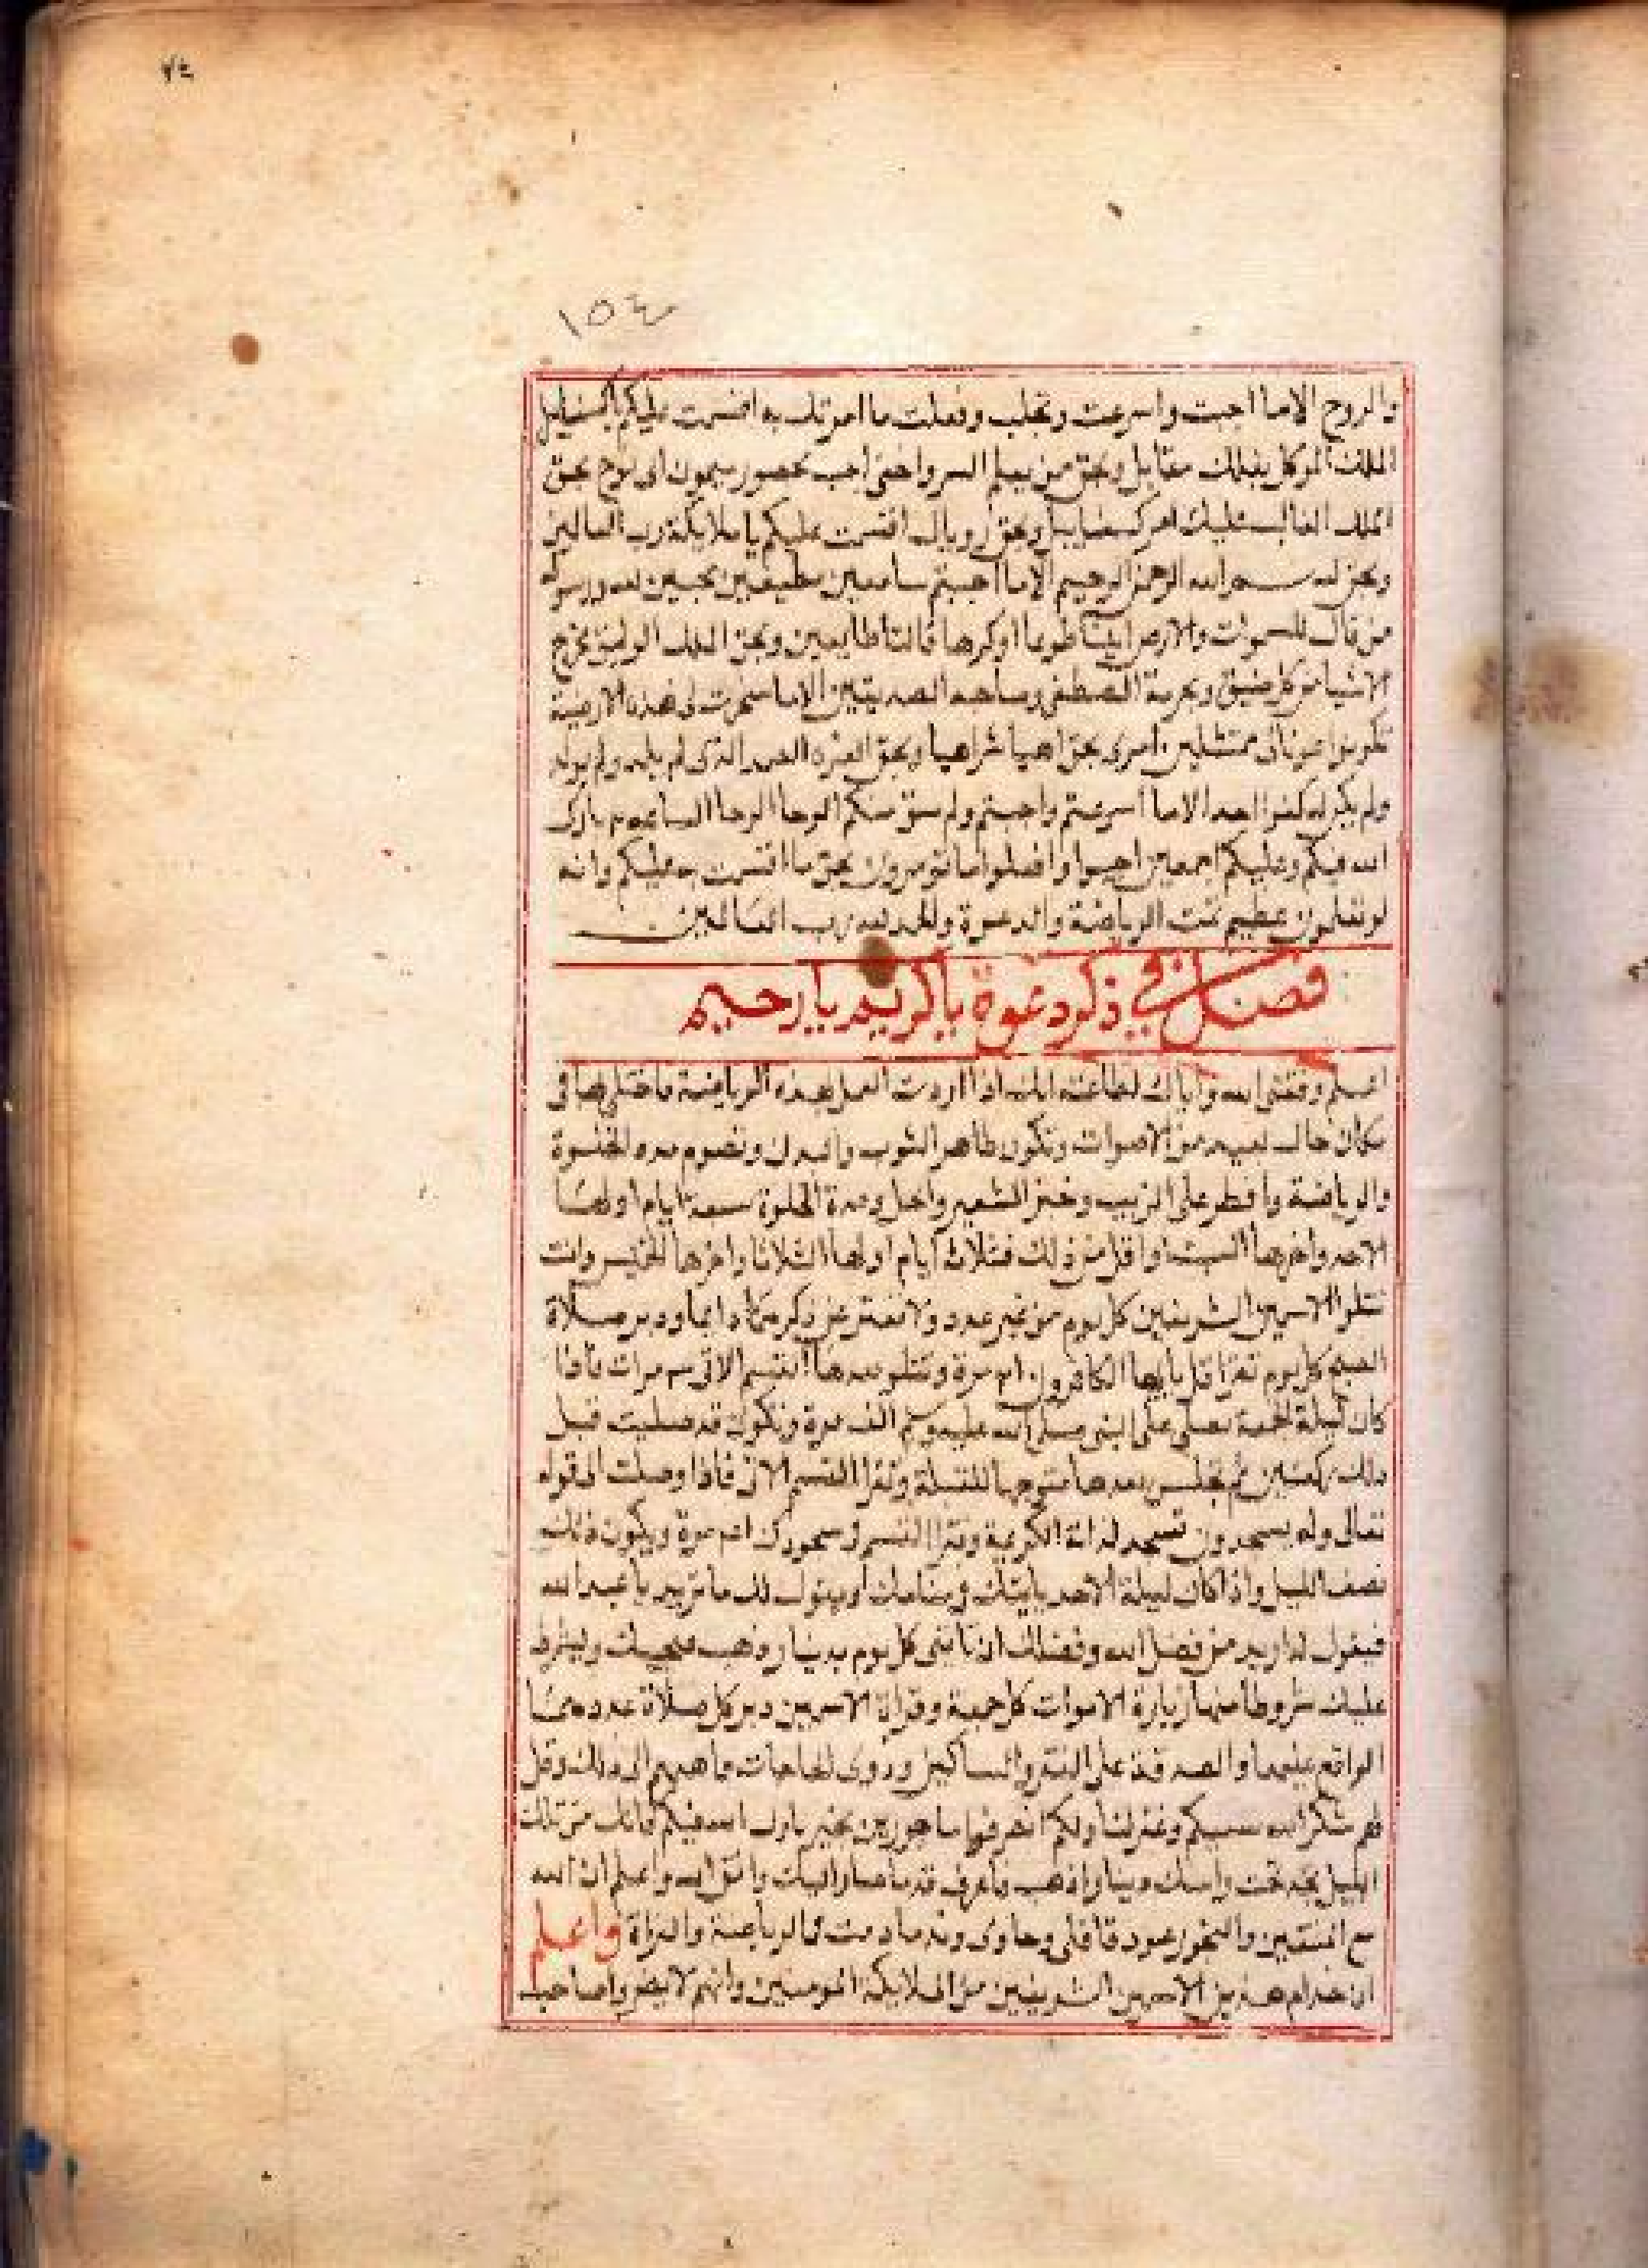 ١٥٤
والروح الاما اجبت واسرعت وفعلت ما امرتك به اقسمت عليكم
الملك الموكل بفلك وبحق من يعلم السر واخفى اجب بحضور ميمون ابى نوح بحق
الملك الغالب عليك امره وبحق اقسمت عليكم يا ملايكة رب العالمين
وبعزة بسم الله الرحمن الرحيم الاما اجبتم سامعين مطيعين لله ورسوله
من قال للسموات والارض ايتيا طوعا اوكرها قالتا طايعين وبحق الملك
الاشيا من كل ضيق وبحرمة المصطفى وصاحبه الاما سخرت لى هذه الارضية
تكونوا عونالى ممتثلين امرى بحق اهيا شراهيا وبحق العزة الصمد الذى لم يلد ولم يولد
ولم يكن له كفوا احد الاما اسرعتم واجبتم الوحا الوحا الساعه بارك
الله فيكم وعليكم اجمعين اجيبوا وافعلوا ما تومرون بحق ما اقسمت به عليكم وانه
لو تعلمون عظيم تمت الرياضة والدعوة والحمد لله رب العالمين
فصل في ذكر دعوة يا كريم يا رحيم
اعلم وفقنى الله واياك لطاعته انك اذا اردت العمل بهذه الرياضة فاختلى بها فى
مكان خال بعيد من الاصوات وتكون طاهر الثوب والبدن وتصوم مده الخلوة
والرياضة وافطر على الزبيب وخبز الشعير والخل ومدة الخلوة سبعة ايام اولها
الاحد واخرها السبت او اقل من ذلك فثلاث ايام اولها الثلاثا واخرها الخميس وانت
تتلوا الاسمين الشريفين كل يوم من غير عدد ولا تفتر عن ذكرهما دايما ودبر صلاة
الصبح كل يوم تقرا قل يا ايها الكافرون مرة وتتلو بعدها القسم الاتى مرات فاذا
كان ليلة الجمعة تصلى على النبى صلى الله عليه وسلم الف مرة وتكون قد صليت قبل
ذلك ركعتين ثم تجلس بعدها متوجها للقبلة وتقرا القسم الاتى فاذا وصلت الى قوله
تعالى وله يسجدون تسجد لذاته الكريمة وتقرا القسم فى سجودك مرة ويكون ذلك
نصف الليل واذا كان ليلة الاحد ياتيك فى منامك ويقول لك ما تريد يا عبد الله
فيقول له اريد من فضل الله وفضلك ان تاتينى كل يوم بدينار ذهب فيجيبك ويشرط
عليك شروطا منها زيارة الاموات كل جمعة وقراة الاسمين دبر كل صلاة عددهما
الواقع عليهما والصدقة على الفقرا والمساكين وذوى الحاجات فاجبهم الى ذلك وقل
لهم شكر الله سعيكم وغفر لنا ولكم انصرفوا ماجورين بخير بارك الله فيكم فانك من تلك
الليلة تجد تحت راسك دينارا ذهب فاعرف قدر ما صار اليك واتق الله واعلم ان الله
مع المتقين والبخور عود قاقلى وجاوى وند ما دمت فى الرياضة والقراة واعلم
ان خدام هذين الاسمين الشريفين من الملايكة المومنين وانهم لا يضروا صاحب